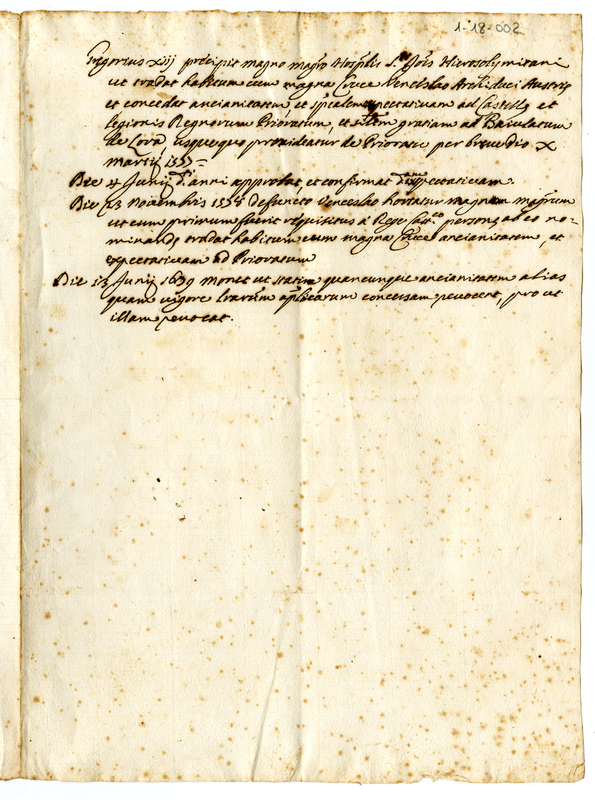 1-18-002
Gregorius xiij precipit magno magro Hosplis S. Jois Hierosolymitani
ut tradat habitum cum magna Cruce Venceslao Archiduci Austrie
et concedat ancianitatem et spealem expectativam ad Castelle et
legionis Regnorum Prioratum, et gratiam ad Baiulatum
de Lora usquequo provideatur de Prioratu per breve dio X
martij 1577
Die 4 Junij d. anni approbat, et confirmat expectativam.
Die 23 Novembris 1578 defuncto Venceslao hortatur magnum magrum
ut cum primum fuerit requisitus a Rege persone ab eo no-
minande tradat habitum cum magna Cruce ancianitatem, et
expectativam ad Prioratum
Die 13 Junij 1639 monet ut statim quancunque ancianitatem alias
quam vigore lrarum aplicarum concessam revocent, prout
illam revocat.